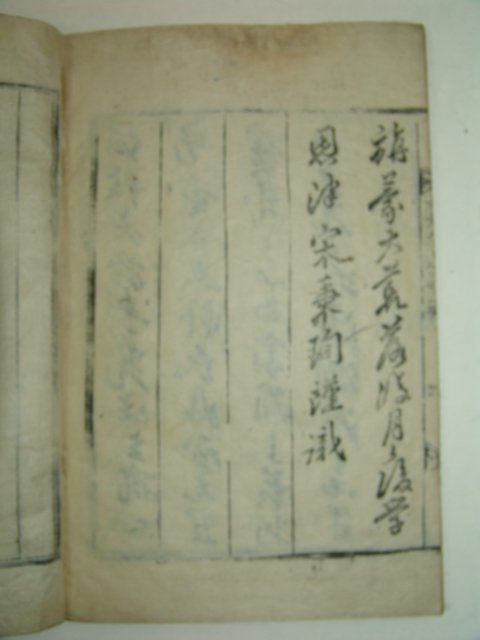 旃蒙大荒落月後学
恩津宋秉珣謹識